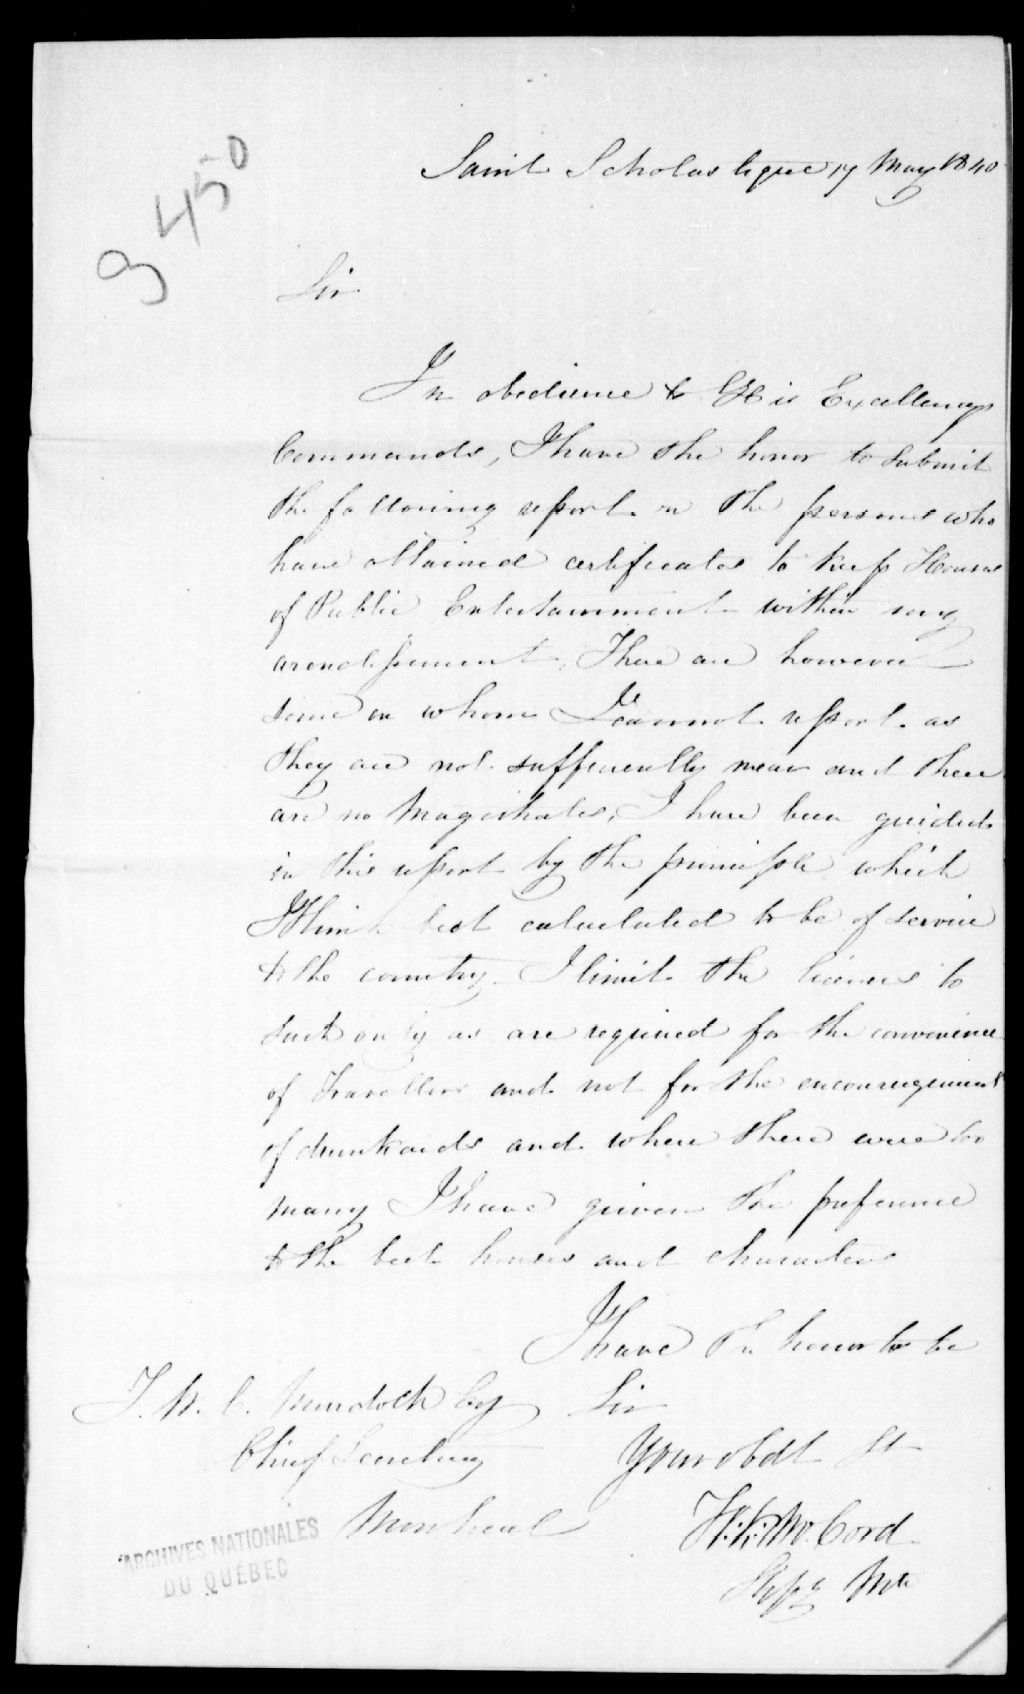 9450
Saint Scholastique 17 May 1840
Sir
In obedience to His Excellencys
Commands, I have the honor to submit
the following report on the persons who
have obtained certificates to keep Houses
of Public Entertainment within my
arondissement. There are however
some on whom I cannot report as
they are not sufficiently near and there
are no Magistrates, I have been guided
in this report by the principle which
I think best calculated to be of service
to the country. I limit the licenses to
such only as are required for the convenience
of Travellers and not for the encouragement
of drunkards and where there were too
many I have given the preference
to the best houses and characters
I have the honor to be
Sir
Your obdt St
T. W. C. Murdoch Esq
Chief Secretary
Montreal
McCord
ARCHIVES NATIONALES
DU QUÉBEC